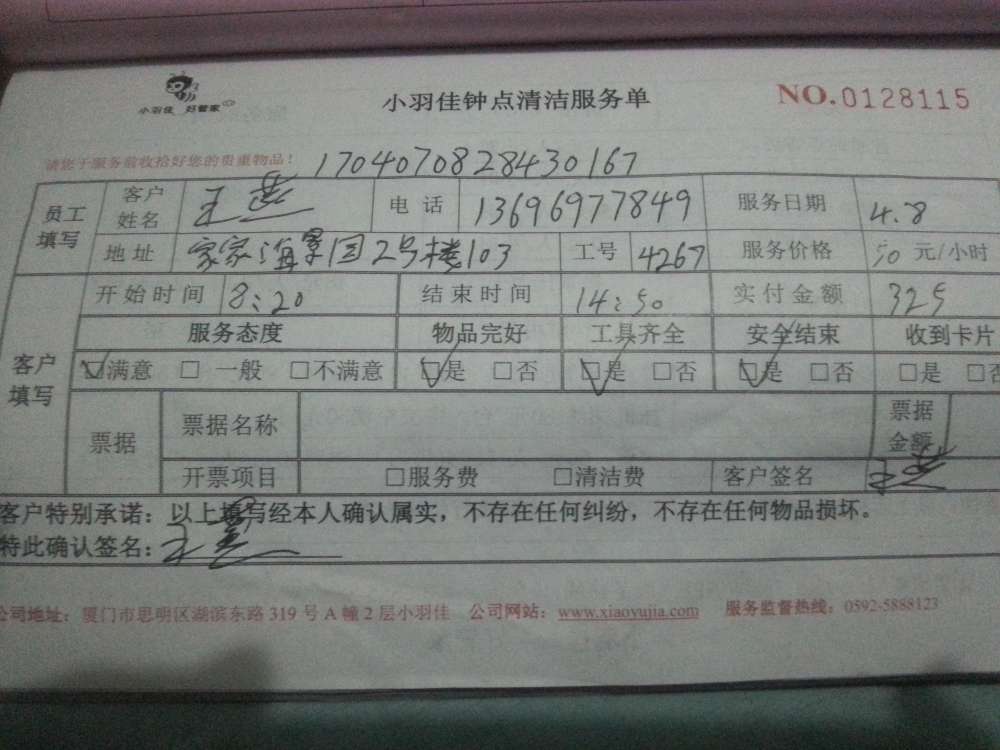 小羽佳 好管家
小羽佳钟点清洁服务单
NO.0128115
请您于服务前收拾好您的贵重物品！ 1704070828430167
员工填写 客户姓名 王 电话 13696977849 服务日期 4.8
地址 家家海景园2号楼103 工号 4267 服务价格 50 元/小时
客户填写 开始时间 8:20 结束时间 14:50 实付金额 325
服务态度 物品完好 工具齐全 安全结束 收到卡片
☑满意 □ 一般 □不满意 ☑是 □否 ☑是 □否 ☑是 □否 □是 □否
票据 票据名称 票据金额
开票项目 □服务费 □清洁费 客户签名 王
客户特别承诺：以上填写经本人确认属实，不存在任何纠纷，不存在任何物品损坏。
特此确认签名：王
公司地址：厦门市思明区湖滨东路 319 号 A 幢 2 层小羽佳 公司网站：www.xiaoyujia.com 服务监督热线：0592-5888123